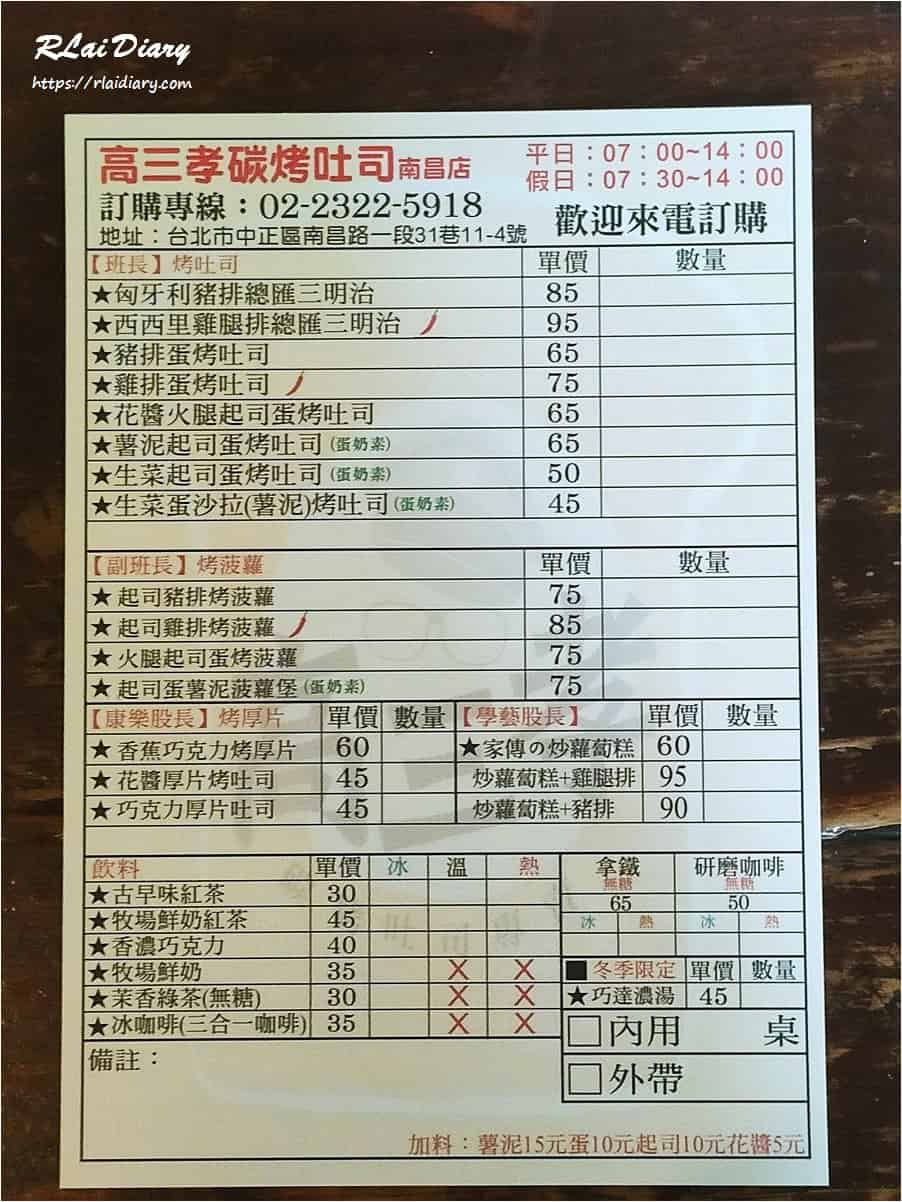 RLai Diary
https://rlaidiary.com
高三孝碳烤吐司南昌店
平日：07：00~14：00
假日：07：30~14：00
訂購專線：02-2322-5918
歡迎來電訂購
地址：台北市中正區南昌路一段31巷11-4號
【班長】烤吐司 單價 數量
★匈牙利豬排總匯三明治 85
★西西里雞腿排總匯三明治 95
★豬排蛋烤吐司 65
★雞排蛋烤吐司 75
★花醬火腿起司蛋烤吐司 65
★薯泥起司蛋烤吐司(蛋奶素) 65
★生菜起司蛋烤吐司(蛋奶素) 50
★生菜蛋沙拉(薯泥)烤吐司(蛋奶素) 45
【副班長】烤菠蘿 單價 數量
★起司豬排烤菠蘿 75
★起司雞排烤菠蘿 85
★火腿起司蛋烤菠蘿 75
★起司蛋薯泥菠蘿堡(蛋奶素) 75
【康樂股長】烤厚片 單價 數量
★香蕉巧克力烤厚片 60
★花醬厚片烤吐司 45
★巧克力厚片吐司 45
【學藝股長】 單價 數量
★家傳の炒蘿蔔糕 60
炒蘿蔔糕+雞腿排 95
炒蘿蔔糕+豬排 90
飲料 單價 冰 溫 熱
★古早味紅茶 30
★牧場鮮奶紅茶 45
★香濃巧克力 40
★牧場鮮奶 35 X X
★茉香綠茶(無糖) 30 X X
★冰咖啡(三合一咖啡) 35 X X
拿鐵 研磨咖啡
無糖 無糖
65 50
冰 熱 冰 熱
■冬季限定 單價 數量
★巧達濃湯 45
□內用 桌
□外帶
備註：
加料：薯泥15元蛋10元起司10元花醬5元